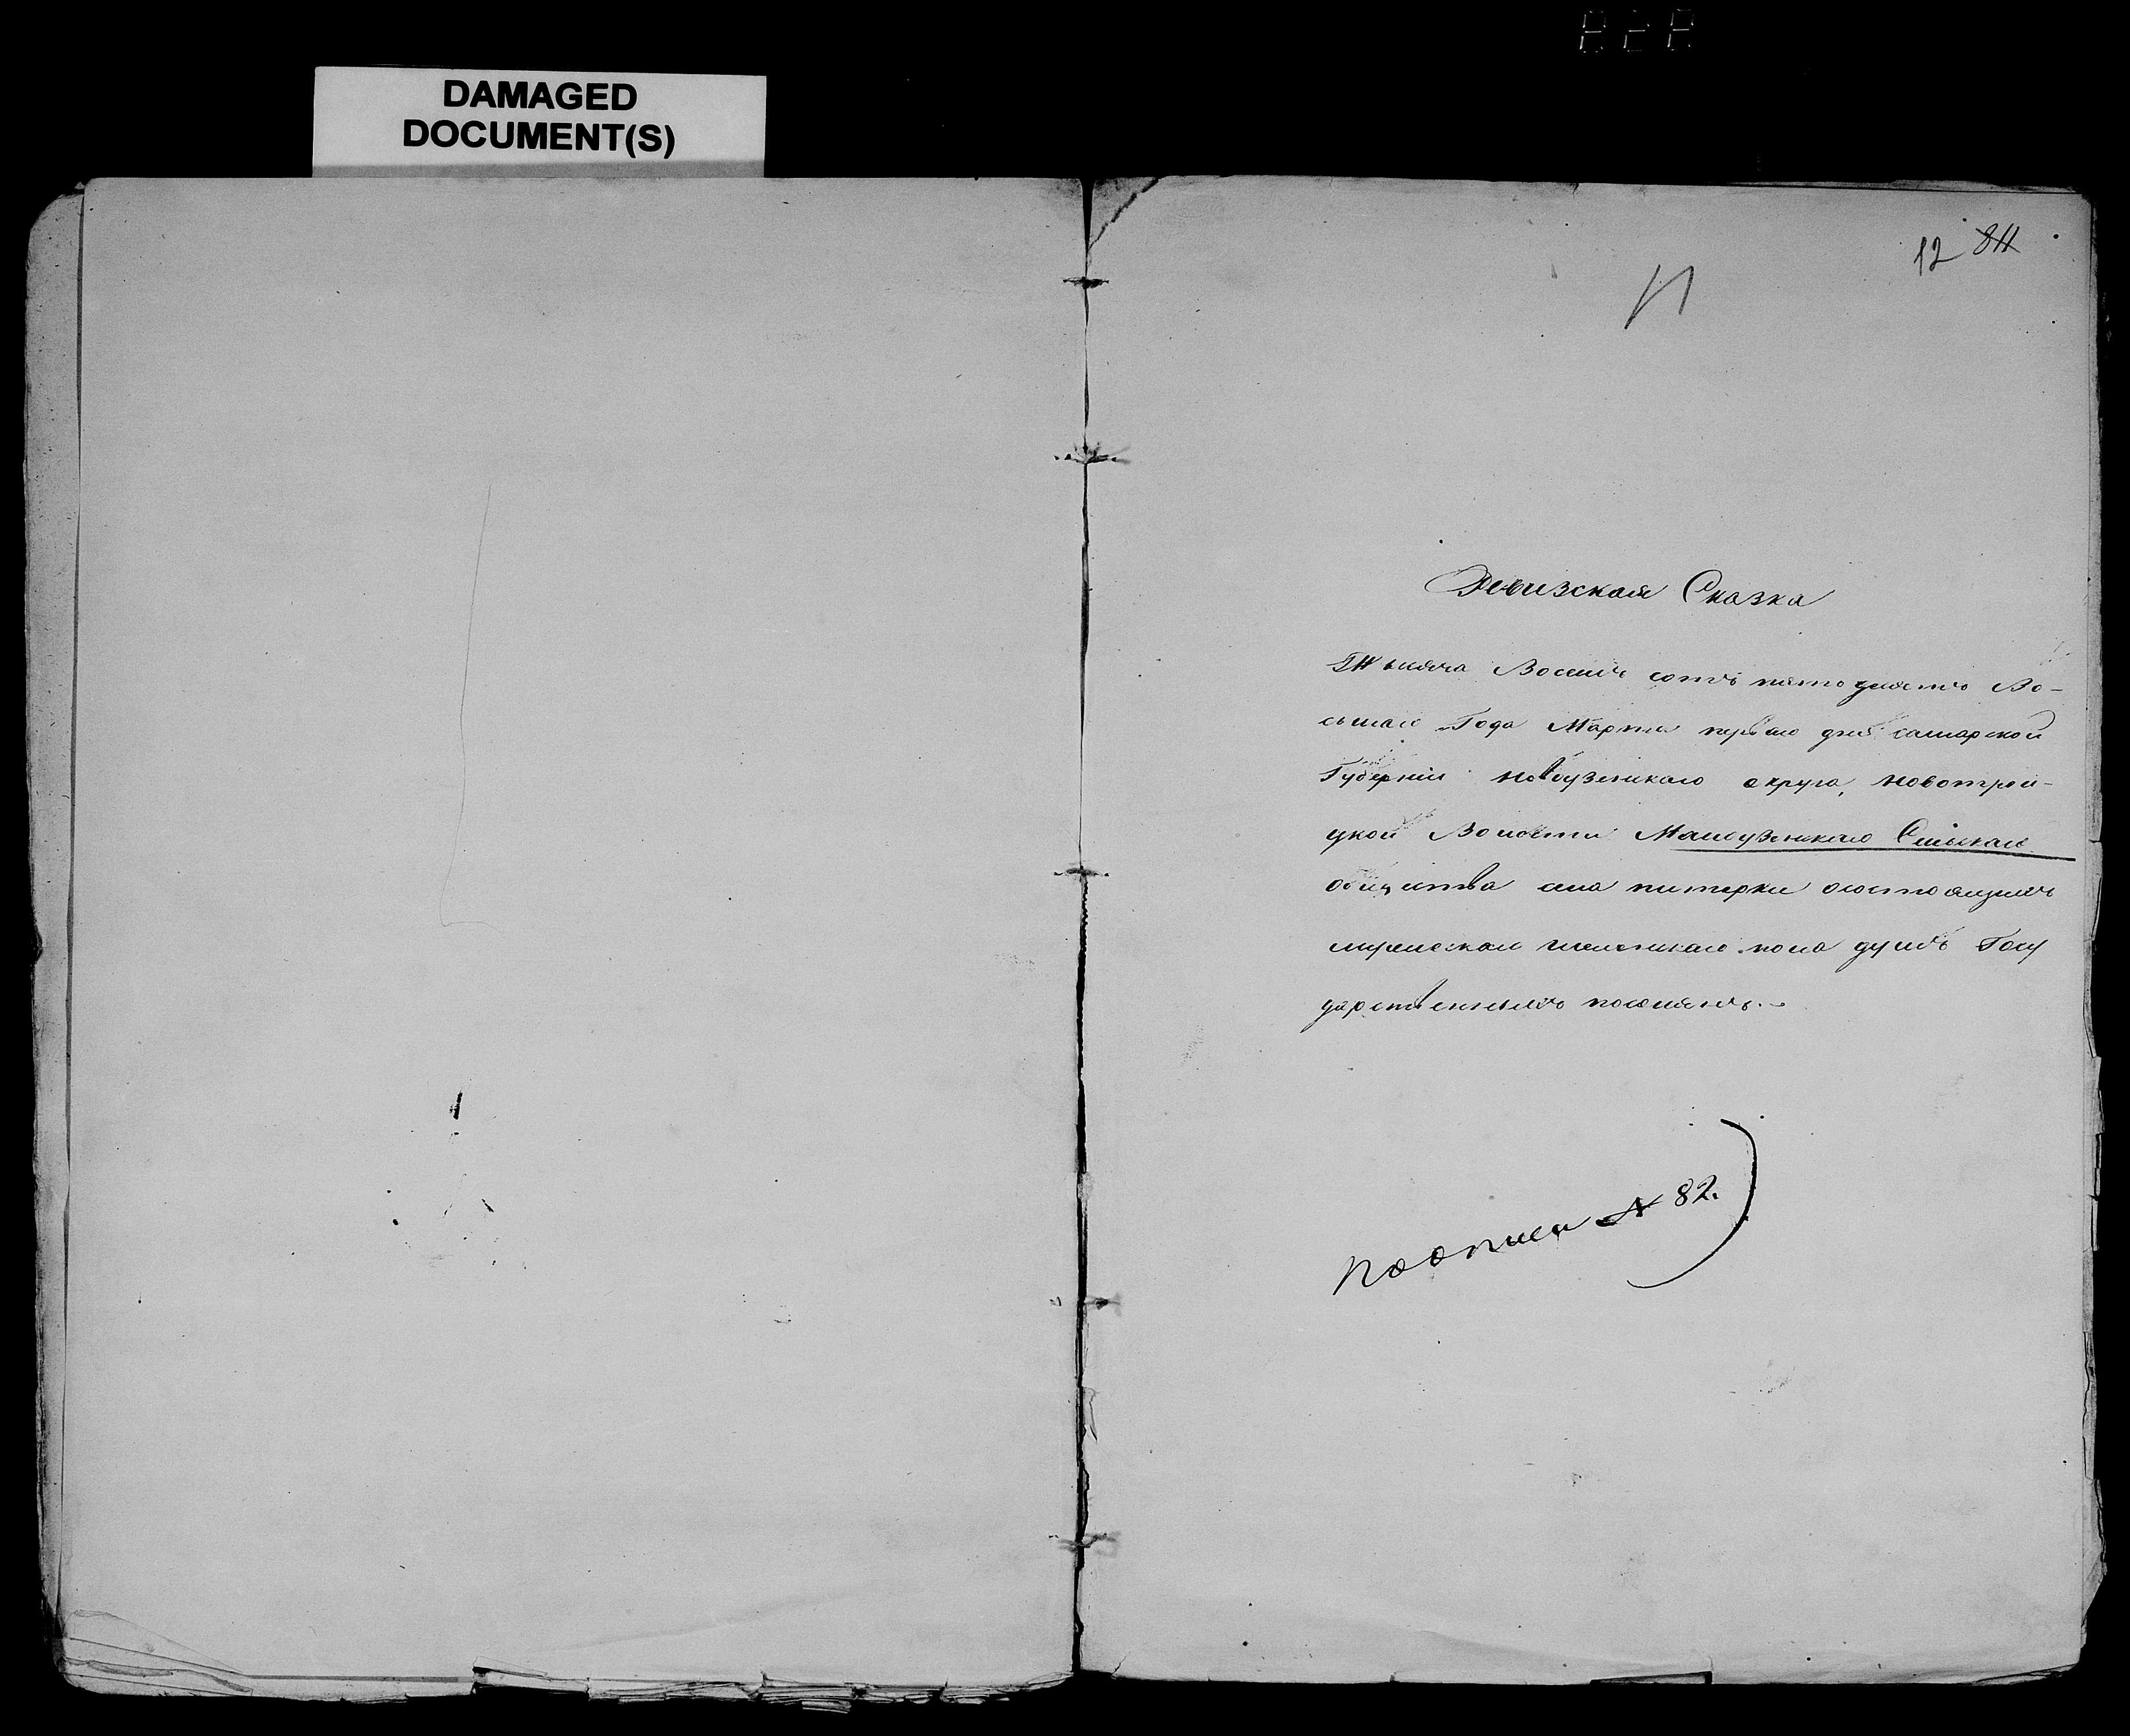 DAMAGED
DOCUMENT(S)
12 811
Ревизская Сказка
Тысяча Восемь сотъ пятьдесятъ Во-
сьмаго Года Марта перваго дня самарской
Губернiи новоузенскаго округа, новотрои-
цкой Волости Малоузенскаго Сельскаго
общества села питерки осостоящихъ
мужескаго женскаго пола душъ Госу
дарственныхъ поселянъ.
по описи № 82.